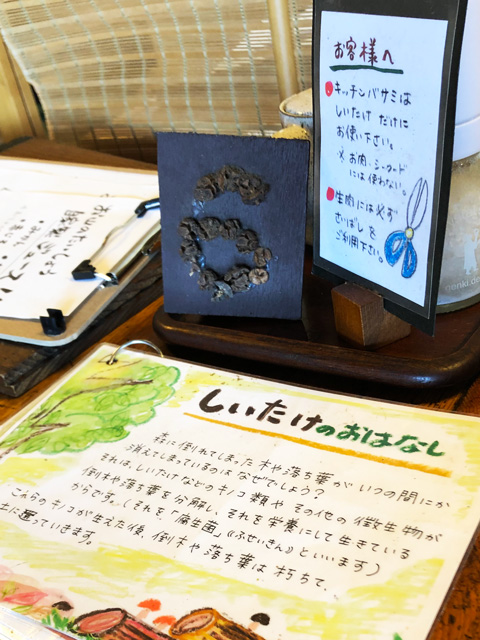 お客様へ
キッチンバサミは
しいたけ だけに
お使い下さい。
※ お肉・シーフード
には使わない。
生肉には必ず
さいばしを
ご利用下さい。
6
しいたけのおはなし
森に倒れてしまった木や落ち葉が いつの間にか
消えてしまっているのは なぜでしょう?
それは、しいたけなどのキノコ類や その他の微生物が
倒木や落ち葉を分解し、それを栄養にして生きている
からです。(それを「腐生菌」《ふせいきん》といいます)
これらのキノコが生えた後、倒木や落ち葉は朽ちて、
土に還っていきます。